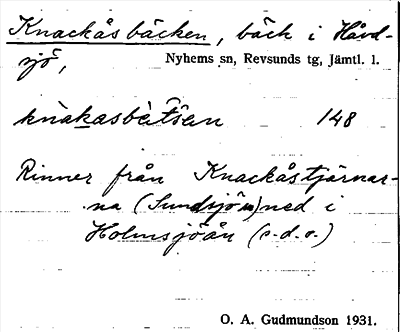 Knackåsbäcken, bäck i Håvd-
sjö,
Nyhems sn, Revsunds tg, Jämtl. l.
148
Rinner från Knackåstjärnar-
na (Sundsjön) ned i
Holmsjöån (s.d.o.)
O. A. Gudmundson 1931.